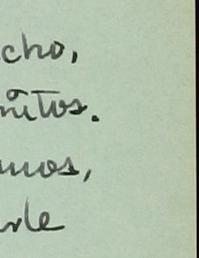 cho,
ñitos.
mos,
rle